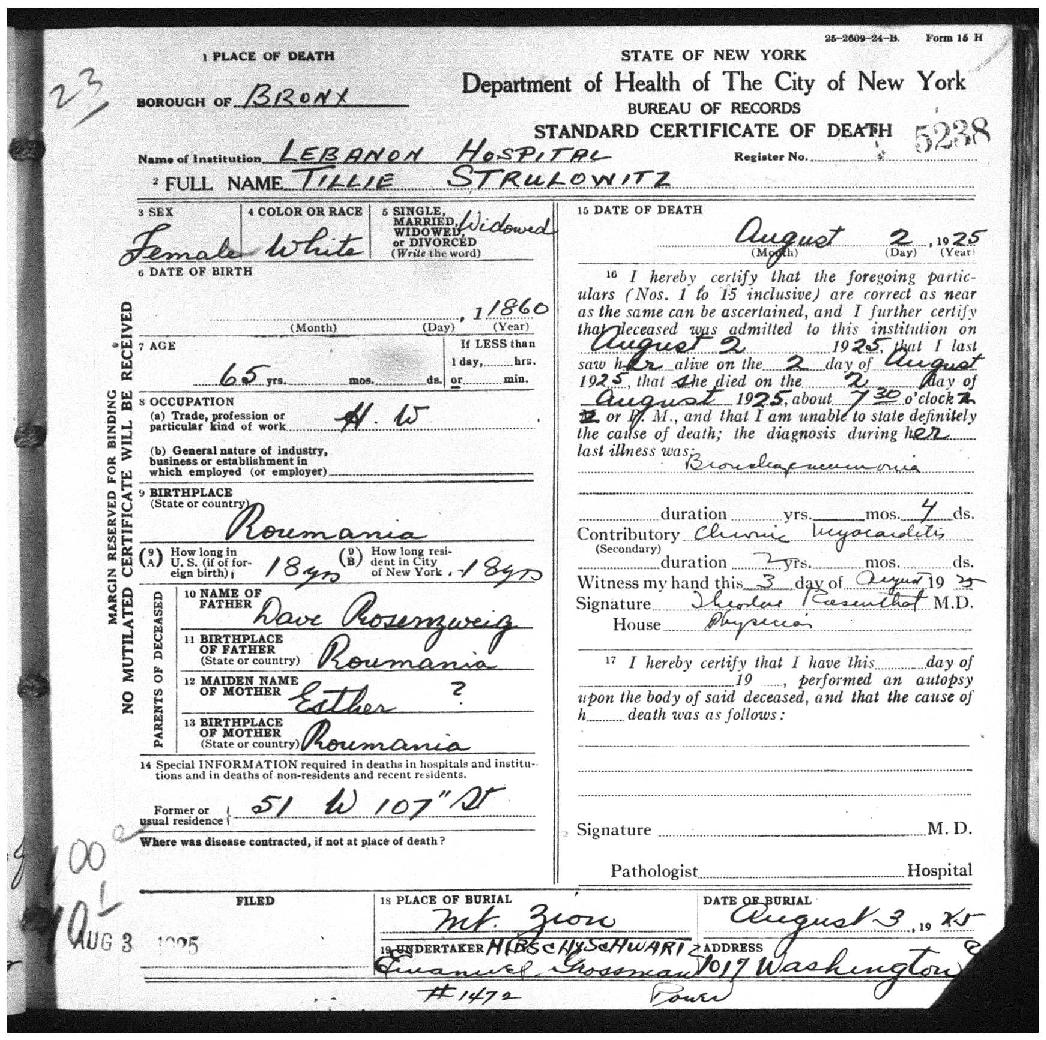 25-2609-24-B. Form 15 H
1 PLACE OF DEATH
STATE OF NEW YORK
23
BOROUGH OF BRONX
Department of Health of The City of New York
BUREAU OF RECORDS
STANDARD CERTIFICATE OF DEATH
5238
Name of Institution LEBANON HOSPITAL
Register No.
2 FULL NAME TILLIE STRULOWITZ
MARGIN RESERVED FOR BINDING
NO MUTILATED CERTIFICATE WILL BE RECEIVED
3 SEX
Female
4 COLOR OR RACE
White
5 SINGLE,
MARRIED,
WIDOWED
or DIVORCED
(Write the word)
Widowed
6 DATE OF BIRTH
, 1 1860
(Month) (Day) (Year)
7 AGE
65 yrs. mos. ds.
If LESS than
1 day, hrs.
or min.
8 OCCUPATION
(a) Trade, profession or
particular kind of work H. W
(b) General nature of industry,
business or establishment in
which employed (or employer)
9 BIRTHPLACE
(State or country)
Roumania
(9 A) How long in
U. S. (if of for-
eign birth) 18 yrs
(9 B) How long resi-
dent in City
of New York 18 yrs
PARENTS OF DECEASED
10 NAME OF
FATHER Dave Rosenzweig
11 BIRTHPLACE
OF FATHER
(State or country) Roumania
12 MAIDEN NAME
OF MOTHER Esther ?
13 BIRTHPLACE
OF MOTHER
(State or country) Roumania
14 Special INFORMATION required in deaths in hospitals and institu-
tions and in deaths of non-residents and recent residents.
Former or
usual residence 51 W 107" St
Where was disease contracted, if not at place of death?
15 DATE OF DEATH
August 2, 1925
(Month) (Day) (Year)
16 I hereby certify that the foregoing partic-
ulars (Nos. 1 to 15 inclusive) are correct as near
as the same can be ascertained, and I further certify
that deceased was admitted to this institution on
August 2 1925, that I last
saw her alive on the 2 day of August
1925, that she died on the 2 day of
August 1925, about 7 30 o'clock
or P. M., and that I am unable to state definitely
the cause of death; the diagnosis during her
last illness was:
Bronchopneumonia
duration yrs. mos. 4 ds.
Contributory Chronic Myocarditis
(Secondary)
duration 2 yrs. mos. ds.
Witness my hand this 3 day of August 19 25
Signature Theodore Rosenthal M.D.
House Physician
17 I hereby certify that I have this day of
19 , performed an autopsy
upon the body of said deceased, and that the cause of
h death was as follows:
Signature M. D.
Pathologist Hospital
FILED
AUG 3 1925
18 PLACE OF BURIAL
Mt. Zion
DATE OF BURIAL
August 3, 19 25
19 UNDERTAKER HIRSCH & SCHWARTZ
Emanuel Grossman
ADDRESS
1017 Washington
#1472